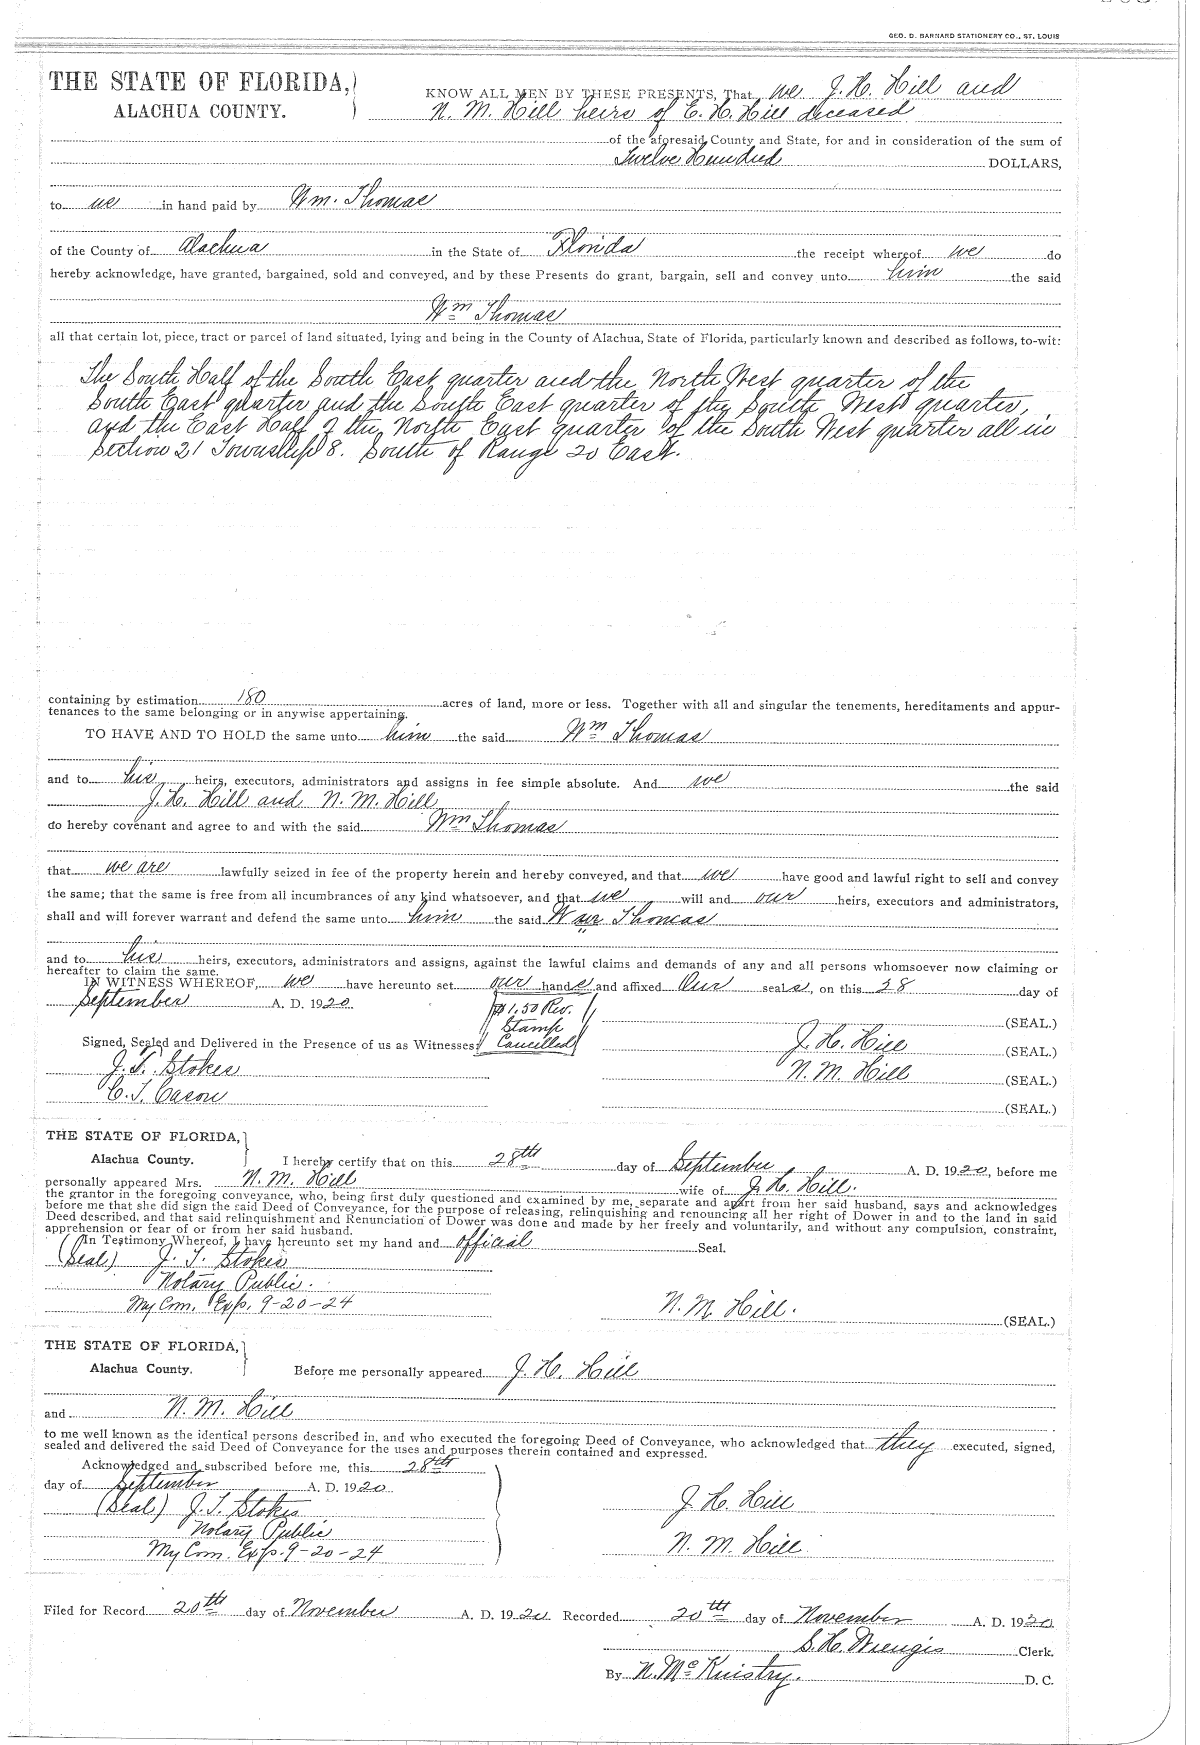 GEO. D. BARNARD STATIONERY CO., ST. LOUIS
THE STATE OF FLORIDA,
ALACHUA COUNTY.
KNOW ALL MEN BY THESE PRESENTS, That we J. H. Hill and
N. M. Hill heirs of E. H. Hill deceased
of the aforesaid County and State, for and in consideration of the sum of
Twelve Hundred DOLLARS,
to us in hand paid by Wm. Thomas
of the County of Alachua in the State of Florida the receipt whereof we do
hereby acknowledge, have granted, bargained, sold and conveyed, and by these Presents do grant, bargain, sell and convey unto him the said
Wm Thomas
all that certain lot, piece, tract or parcel of land situated, lying and being in the County of Alachua, State of Florida, particularly known and described as follows, to-wit:
The South Half of the South East quarter and the North West quarter of the
South East quarter and the South East quarter of the South West quarter,
and the East Half of the North East quarter of the South West quarter all in
Section 21 Township 8. South of Range 20 East.
containing by estimation 180 acres of land, more or less. Together with all and singular the tenements, hereditaments and appur-
tenances to the same belonging or in anywise appertaining.
TO HAVE AND TO HOLD the same unto him the said Wm Thomas
and to his heirs, executors, administrators and assigns in fee simple absolute. And we the said
J. H. Hill and N. M. Hill
do hereby covenant and agree to and with the said Wm Thomas
that we are lawfully seized in fee of the property herein and hereby conveyed, and that we have good and lawful right to sell and convey
the same; that the same is free from all incumbrances of any kind whatsoever, and that we will and our heirs, executors and administrators,
shall and will forever warrant and defend the same unto him the said Wm Thomas
and to his heirs, executors, administrators and assigns, against the lawful claims and demands of any and all persons whomsoever now claiming or
hereafter to claim the same.
IN WITNESS WHEREOF, we have hereunto set our hands and affixed Our seals, on this 28 day of
September A. D. 1920
$1.50 Rev.
Stamp
Cancelled
(SEAL.)
Signed, Sealed and Delivered in the Presence of us as Witnesses:
J. H. Hill (SEAL.)
J. T. Stokes
N. M. Hill (SEAL.)
C. T. Cason
(SEAL.)
THE STATE OF FLORIDA,
Alachua County.
I hereby certify that on this 28th day of September A. D. 1920, before me
personally appeared Mrs. N. M. Hill wife of J. H. Hill.
the grantor in the foregoing conveyance, who, being first duly questioned and examined by me, separate and apart from her said husband, says and acknowledges
before me that she did sign the said Deed of Conveyance, for the purpose of releasing, relinquishing and renouncing all her right of Dower in and to the land in said
Deed described, and that said relinquishment and Renunciation of Dower was done and made by her freely and voluntarily, and without any compulsion, constraint,
apprehension or fear of or from her said husband.
In Testimony Whereof, I have hereunto set my hand and official Seal.
(Seal) J. T. Stokes
Notary Public.
My Com. Exp. 9-20-24
N. M. Hill. (SEAL.)
THE STATE OF FLORIDA,
Alachua County.
Before me personally appeared J. H. Hill
and N. M. Hill
to me well known as the identical persons described in, and who executed the foregoing Deed of Conveyance, who acknowledged that they executed, signed,
sealed and delivered the said Deed of Conveyance for the uses and purposes therein contained and expressed.
Acknowledged and subscribed before me, this 28th
day of September A. D. 1920
(Seal) J. T. Stokes
Notary Public
My Com. Exp. 9-20-24
J. H. Hill
N. M. Hill
Filed for Record 20th day of November A. D. 1920 Recorded 20th day of November A. D. 1920
S. H. Wienges Clerk.
By N. McKinstry. D. C.